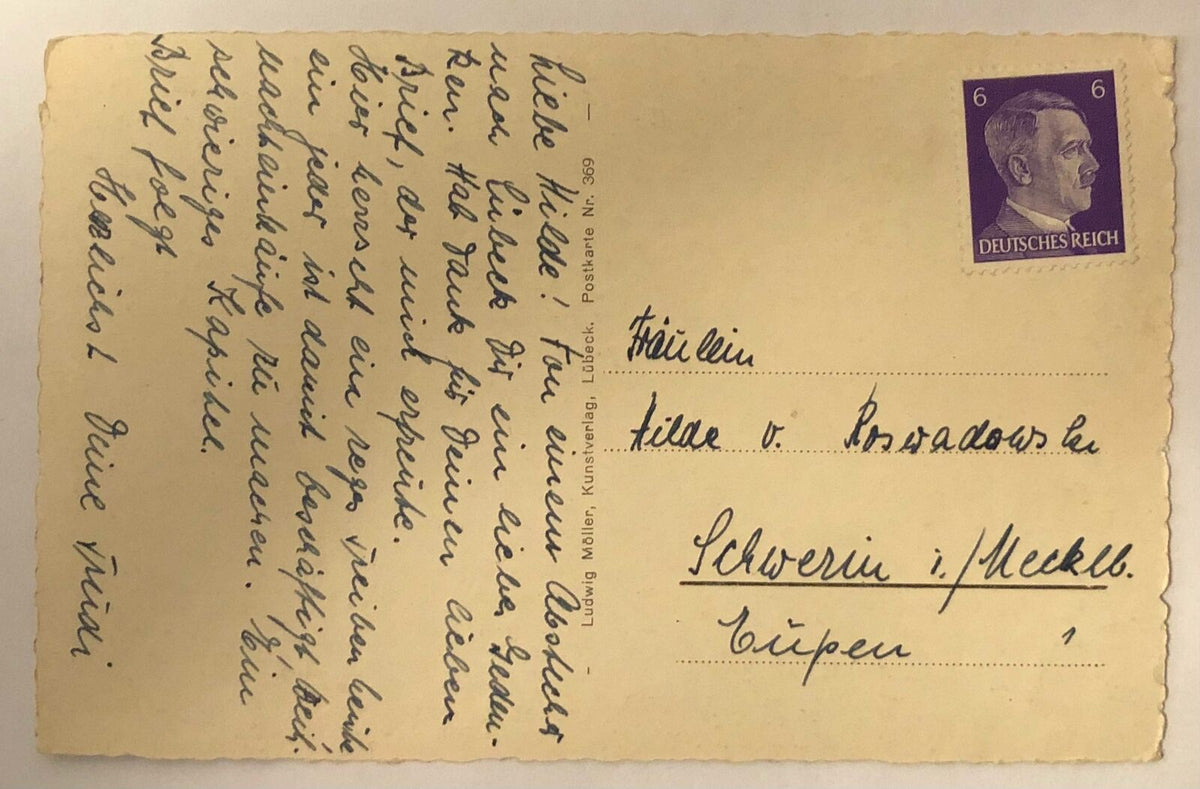 Liebe Hilde! Von einem Abstecher
nach Lübeck Dir ein liebes Geden-
ken. Hab Dank für Deinen lieben
Brief, der mich erfreute.
Hier herrscht ein reges Treiben heute
ein jeder ist damit beschäftigt Weih-
nachtseinkäufe zu machen. Ein
schwieriges Kapitel.
Brief folgt
Herzlichst Deine Trudi
Ludwig Möller, Kunstverlag, Lübeck. Postkarte Nr. 369
6 6
DEUTSCHES REICH
Fräulein
Hilde v. Roswadowski
Schwerin i./Mecklb.
Eupen 1